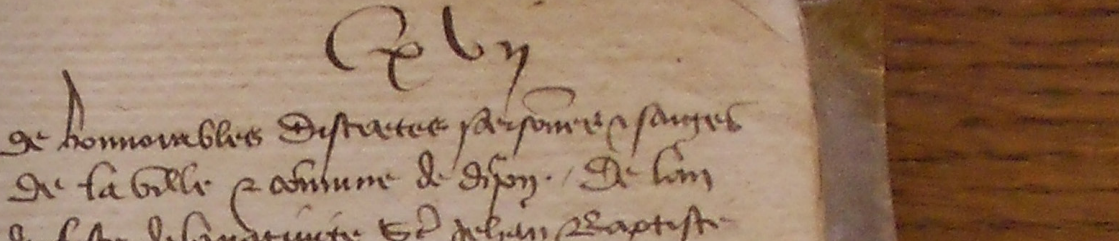 Cxvij
de honnorables discretes personnes & saiges
de la ville & commune de dijon. De lan
la feste de la nativite St Jehan Baptiste